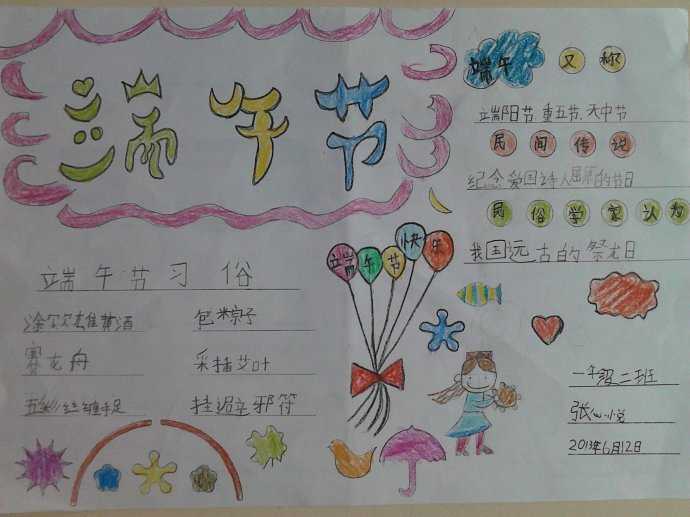 端午节
端午 又称
端阳节、重五节、天中节
民间传说
纪念爱国诗人屈原的节日
民俗学家认为
我国远古的祭龙日
端午节快乐
端午节习俗
涂尔雄黄酒
包粽子
赛龙舟
采插艾叶
五彩丝缠手足
挂避邪符
一年级二班
张心悦
2013年6月12日